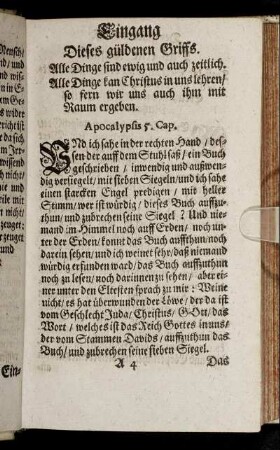 Eingang
Dieses güldenen Griffs.
Alle Dinge sind ewig und auch zeitlich.
Alle Dinge kan Christus in uns lehren/
so fern wir uns auch ihm mit
Raum ergeben.
Apocalypsis 5. Cap.
UNd ich sahe in der rechten Hand / des-
sen der auff dem Stuhl saß / ein Buch
geschrieben / inwendig und außwen-
dig vertiegelt / mit sieben Siegeln / und ich sahe
einen starcken Engel predigen / mit heller
Stimm / wer ist würdig / dieses Buch auffzu-
thun / und zubrechen seine Siegel ? Und nie-
mand im Himmel noch auff Erden / noch un-
ter der Erden / konnt das Buch auffthun / noch
darein sehen / und ich weinet sehr / daß niemand
würdig erfunden ward / das Buch auffzuthun
noch zu lesen / noch darinnen zu sehen / aber ei-
ner unter den Eltesten sprach zu mir : Weine
nicht / es hat überwunden der Löwe / der da ist
vom Geschlecht Juda / Christus / G-Ott / das
Wort / welches ist das Reich Gottes in uns /
der vom Stammen Davids / auffzuthun das
Buch / und zubrechen seine sieben Siegel.
A 4 Das
Ein-